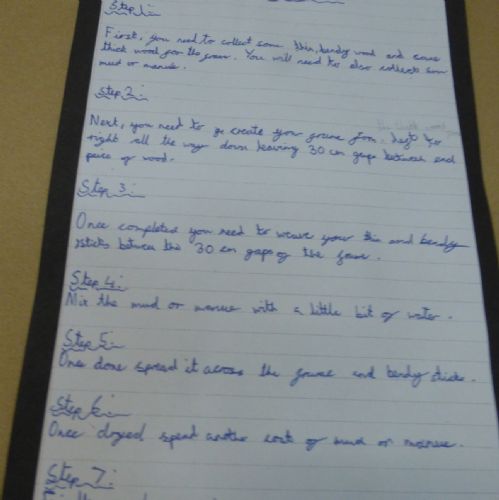 Step 1:
First, you need to collect some thin, bendy wood and some
thick wood for the frame. You will need to also collects som
mud or manure.
Step 2:
Next, you need to go create your frame from left to
right all the way down leaving 30 cm gaps between each
peice of wood.
Step 3:
Once completed you need to weave your thin and bendy
sticks between the 30 cm gaps of the frame.
Step 4:
Mix the mud or manure with a little bit of water.
Step 5:
Once done spread it across the frame and bendy sticks.
Step 6:
Once dryed spead another coat of mud or manure.
Step 7: